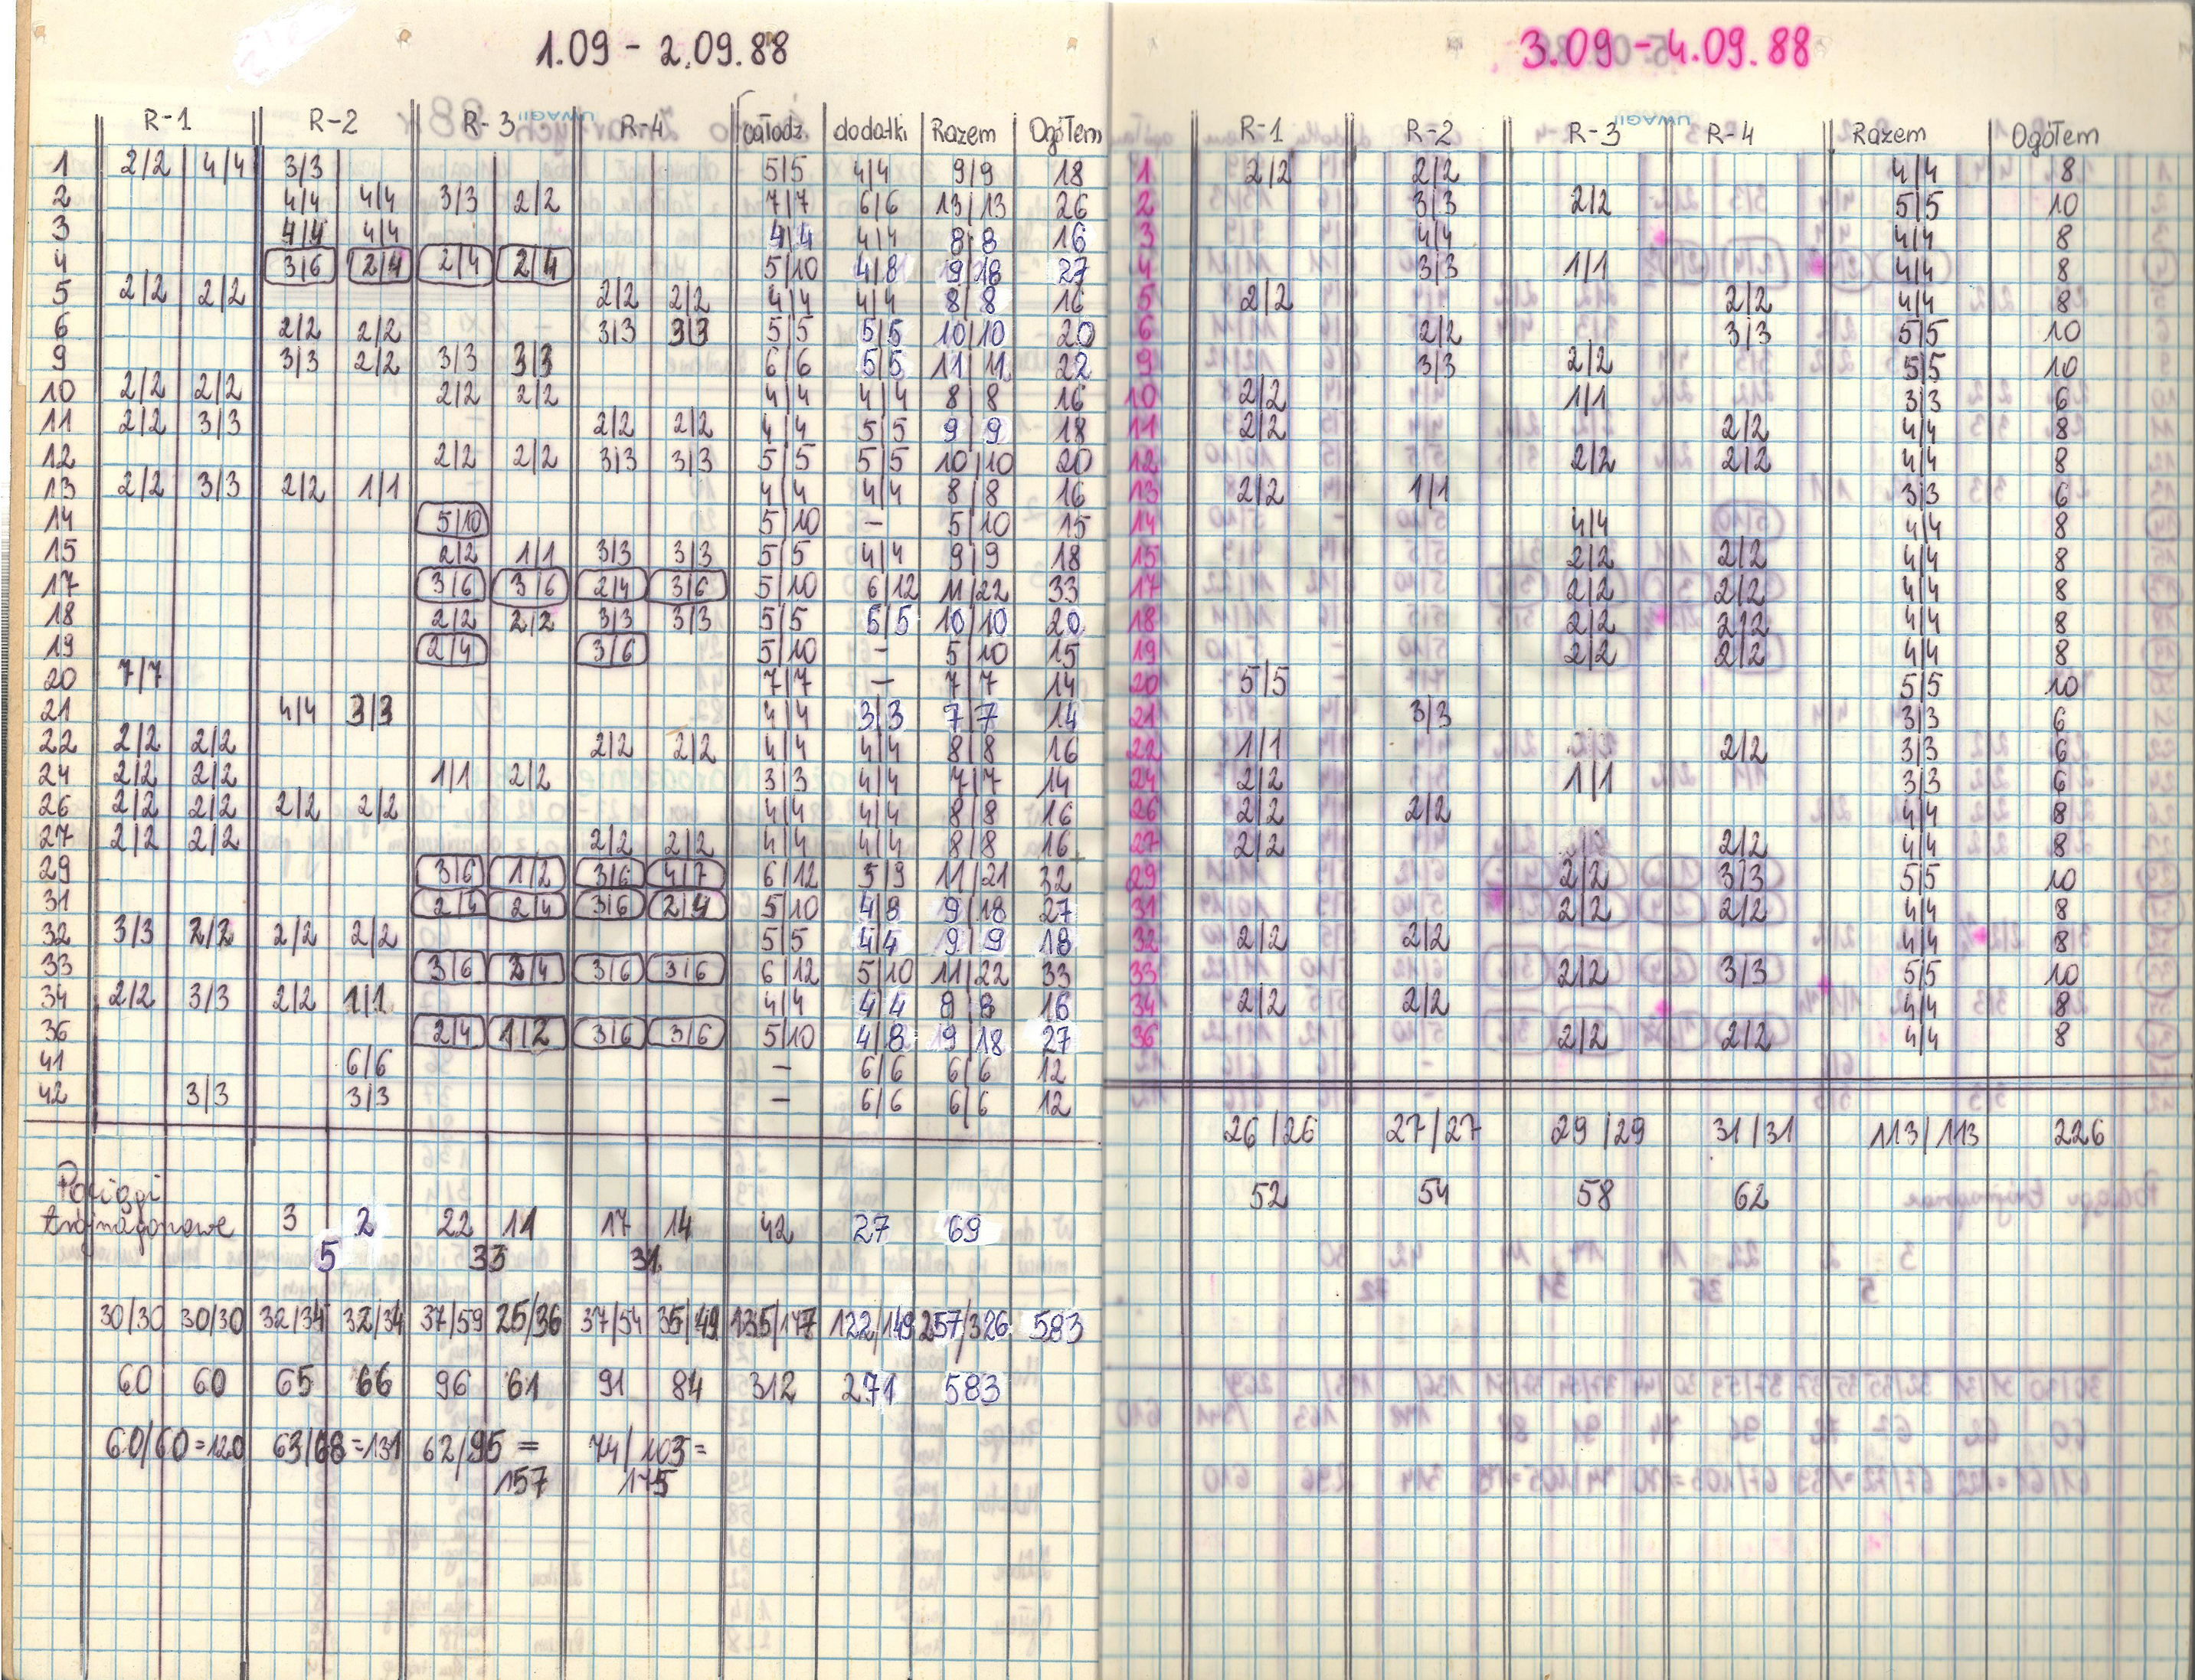 1.09 - 2.09.88
R-1 R-2 R-3 R-4 całodz. dodatki Razem Ogółem
1 2/2 4/4 3/3 5/5 4/4 9/9 18
2 4/4 4/4 3/3 2/2 7/7 6/6 13/13 26
3 4/4 4/4 4/4 4/4 8/8 16
4 3/6 2/4 2/4 2/4 5/10 4/8 9/18 27
5 2/2 2/2 2/2 2/2 4/4 4/4 8/8 16
6 2/2 2/2 3/3 3/3 5/5 5/5 10/10 20
9 3/3 2/2 3/3 3/3 6/6 5/5 11/11 22
10 2/2 2/2 2/2 2/2 4/4 4/4 8/8 16
11 2/2 3/3 2/2 2/2 4/4 5/5 9/9 18
12 2/2 2/2 3/3 3/3 5/5 5/5 10/10 20
13 2/2 3/3 2/2 1/1 4/4 4/4 8/8 16
14 5/10 5/10 - 5/10 15
15 2/2 1/1 3/3 3/3 5/5 4/4 9/9 18
17 3/6 3/6 2/4 3/6 5/10 6/12 11/22 33
18 2/2 2/2 3/3 3/3 5/5 5/5 10/10 20
19 2/4 3/6 5/10 - 5/10 15
20 7/7 7/7 - 7/7 14
21 4/4 3/3 4/4 3/3 7/7 14
22 2/2 2/2 2/2 2/2 4/4 4/4 8/8 16
24 2/2 2/2 1/1 2/2 3/3 4/4 7/7 14
26 2/2 2/2 2/2 2/2 4/4 4/4 8/8 16
27 2/2 2/2 2/2 2/2 4/4 4/4 8/8 16
29 3/6 1/2 3/6 4/7 6/12 5/9 11/21 32
31 2/4 2/4 3/6 2/4 5/10 4/8 9/18 27
32 3/3 2/2 2/2 2/2 5/5 4/4 9/9 18
33 3/6 2/4 3/6 3/6 6/12 5/10 11/22 33
34 2/2 3/3 2/2 1/1 4/4 4/4 8/8 16
36 2/4 1/2 3/6 3/6 5/10 4/8 9/18 27
41 6/6 - 6/6 6/6 12
42 3/3 3/3 - 6/6 6/6 12
Pociągi
trójwagonowe 3 2 22 11 17 14 42 27 69
5 33 31
30/30 30/30 32/34 32/34 37/59 25/36 37/54 35/49 135/177 122/149 257/326 583
60 60 65 66 96 61 91 84 312 271 583
60/60=120 63/68=131 62/95= 74/103=
157 175
3.09 - 4.09.88
R-1 R-2 R-3 R-4 Razem Ogółem
1 2/2 2/2 4/4 8
2 3/3 2/2 5/5 10
3 4/4 4/4 8
4 3/3 1/1 4/4 8
5 2/2 2/2 4/4 8
6 2/2 3/3 5/5 10
9 3/3 2/2 5/5 10
10 2/2 1/1 3/3 6
11 2/2 2/2 4/4 8
12 2/2 2/2 4/4 8
13 2/2 1/1 3/3 6
14 4/4 4/4 8
15 2/2 2/2 4/4 8
17 2/2 2/2 4/4 8
18 2/2 2/2 4/4 8
19 2/2 2/2 4/4 8
20 5/5 5/5 10
21 3/3 3/3 6
22 1/1 2/2 3/3 6
24 2/2 1/1 3/3 6
26 2/2 2/2 4/4 8
27 2/2 2/2 4/4 8
29 2/2 3/3 5/5 10
31 2/2 2/2 4/4 8
32 2/2 2/2 4/4 8
33 2/2 3/3 5/5 10
34 2/2 2/2 4/4 8
36 2/2 2/2 4/4 8
26/26 27/27 29/29 31/31 113/113 226
52 54 58 62